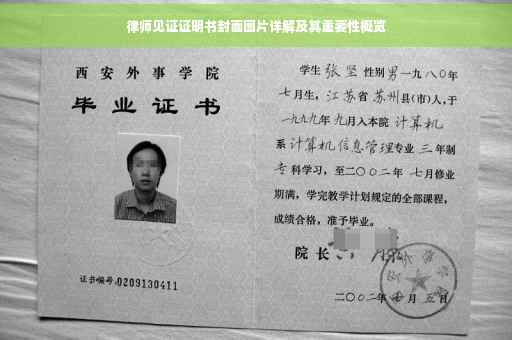 律师见证证明书封面图片详解及其重要性概览
西安外事学院
毕业证书
证书编号:0209130411
学生 张坚 性别 男 一九八〇年
七月生，江苏省 苏州 县(市)人，于
一九九九年 九月入本院 计算机
系 计算机信息管理 专业 三 年制
专 科学习，至二〇〇二年 七月修业
期满，学完教学计划规定的全部课程，
成绩合格，准予毕业。
院长
二〇〇二年 月 五 日